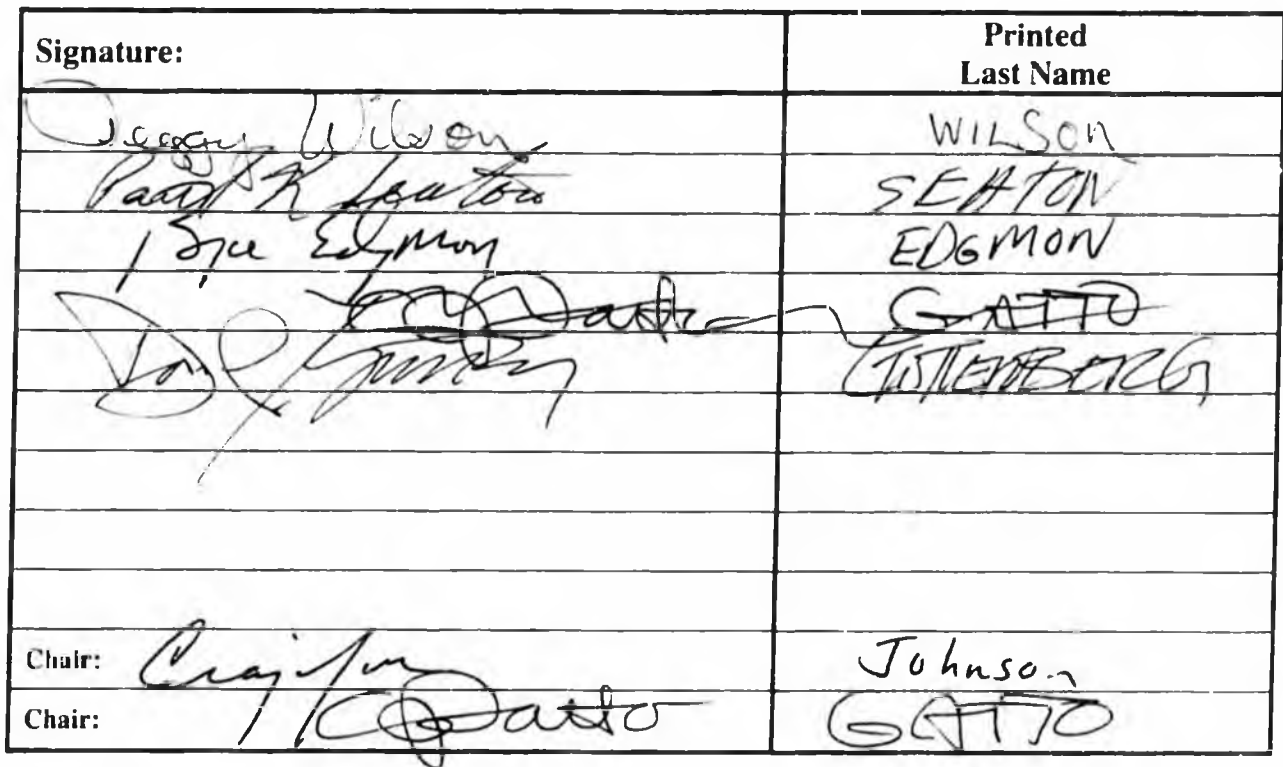 Signature: Printed
Last Name
Peggy Wilson WILSON
Paul K Seaton SEATON
Bryce Edgmon EDGMON
Gatto GATTO
GUTTENBERG
Chair: Craig Johnson
Chair: Gatto GATTO